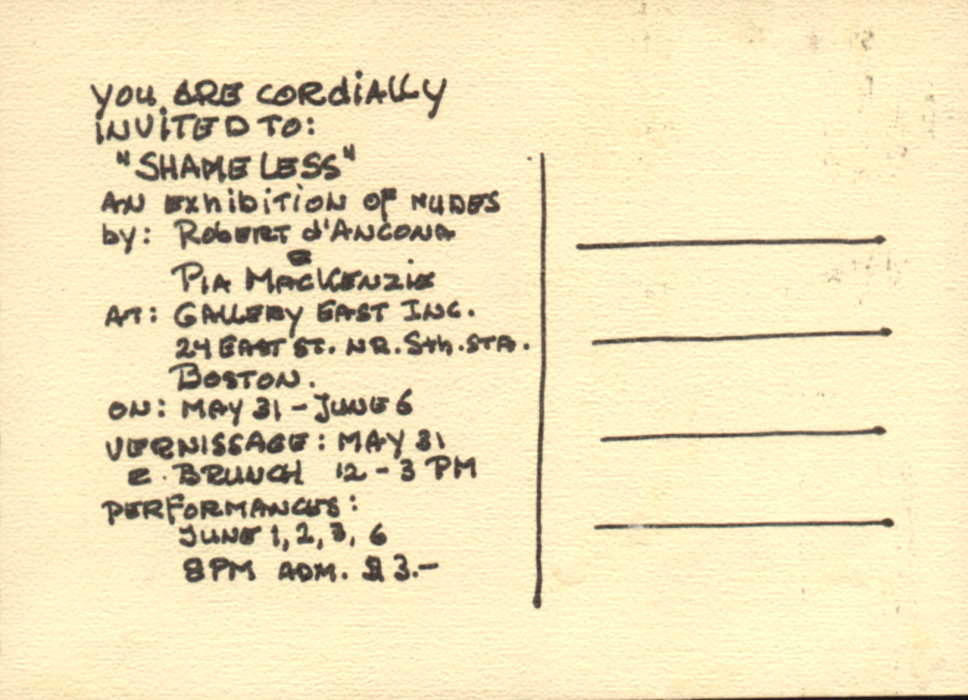 YOU ARE CORdiALLY
INVITED TO:
"SHAMELESS"
AN ExhibiTiON OF NUDES
by: RobERT d'ANCONA
&
PIA MACKENZIE
AT: GALLERY EAST INC.
24 EAST ST. NR. Sth. STA.
BOSTON.
ON: MAY 31 - JUNE 6
VERNISSAGE: MAY 31
& BRUNCH 12 - 3 PM
PERFORMANCES:
JUNE 1, 2, 3, 6
8PM ADM. $3.-